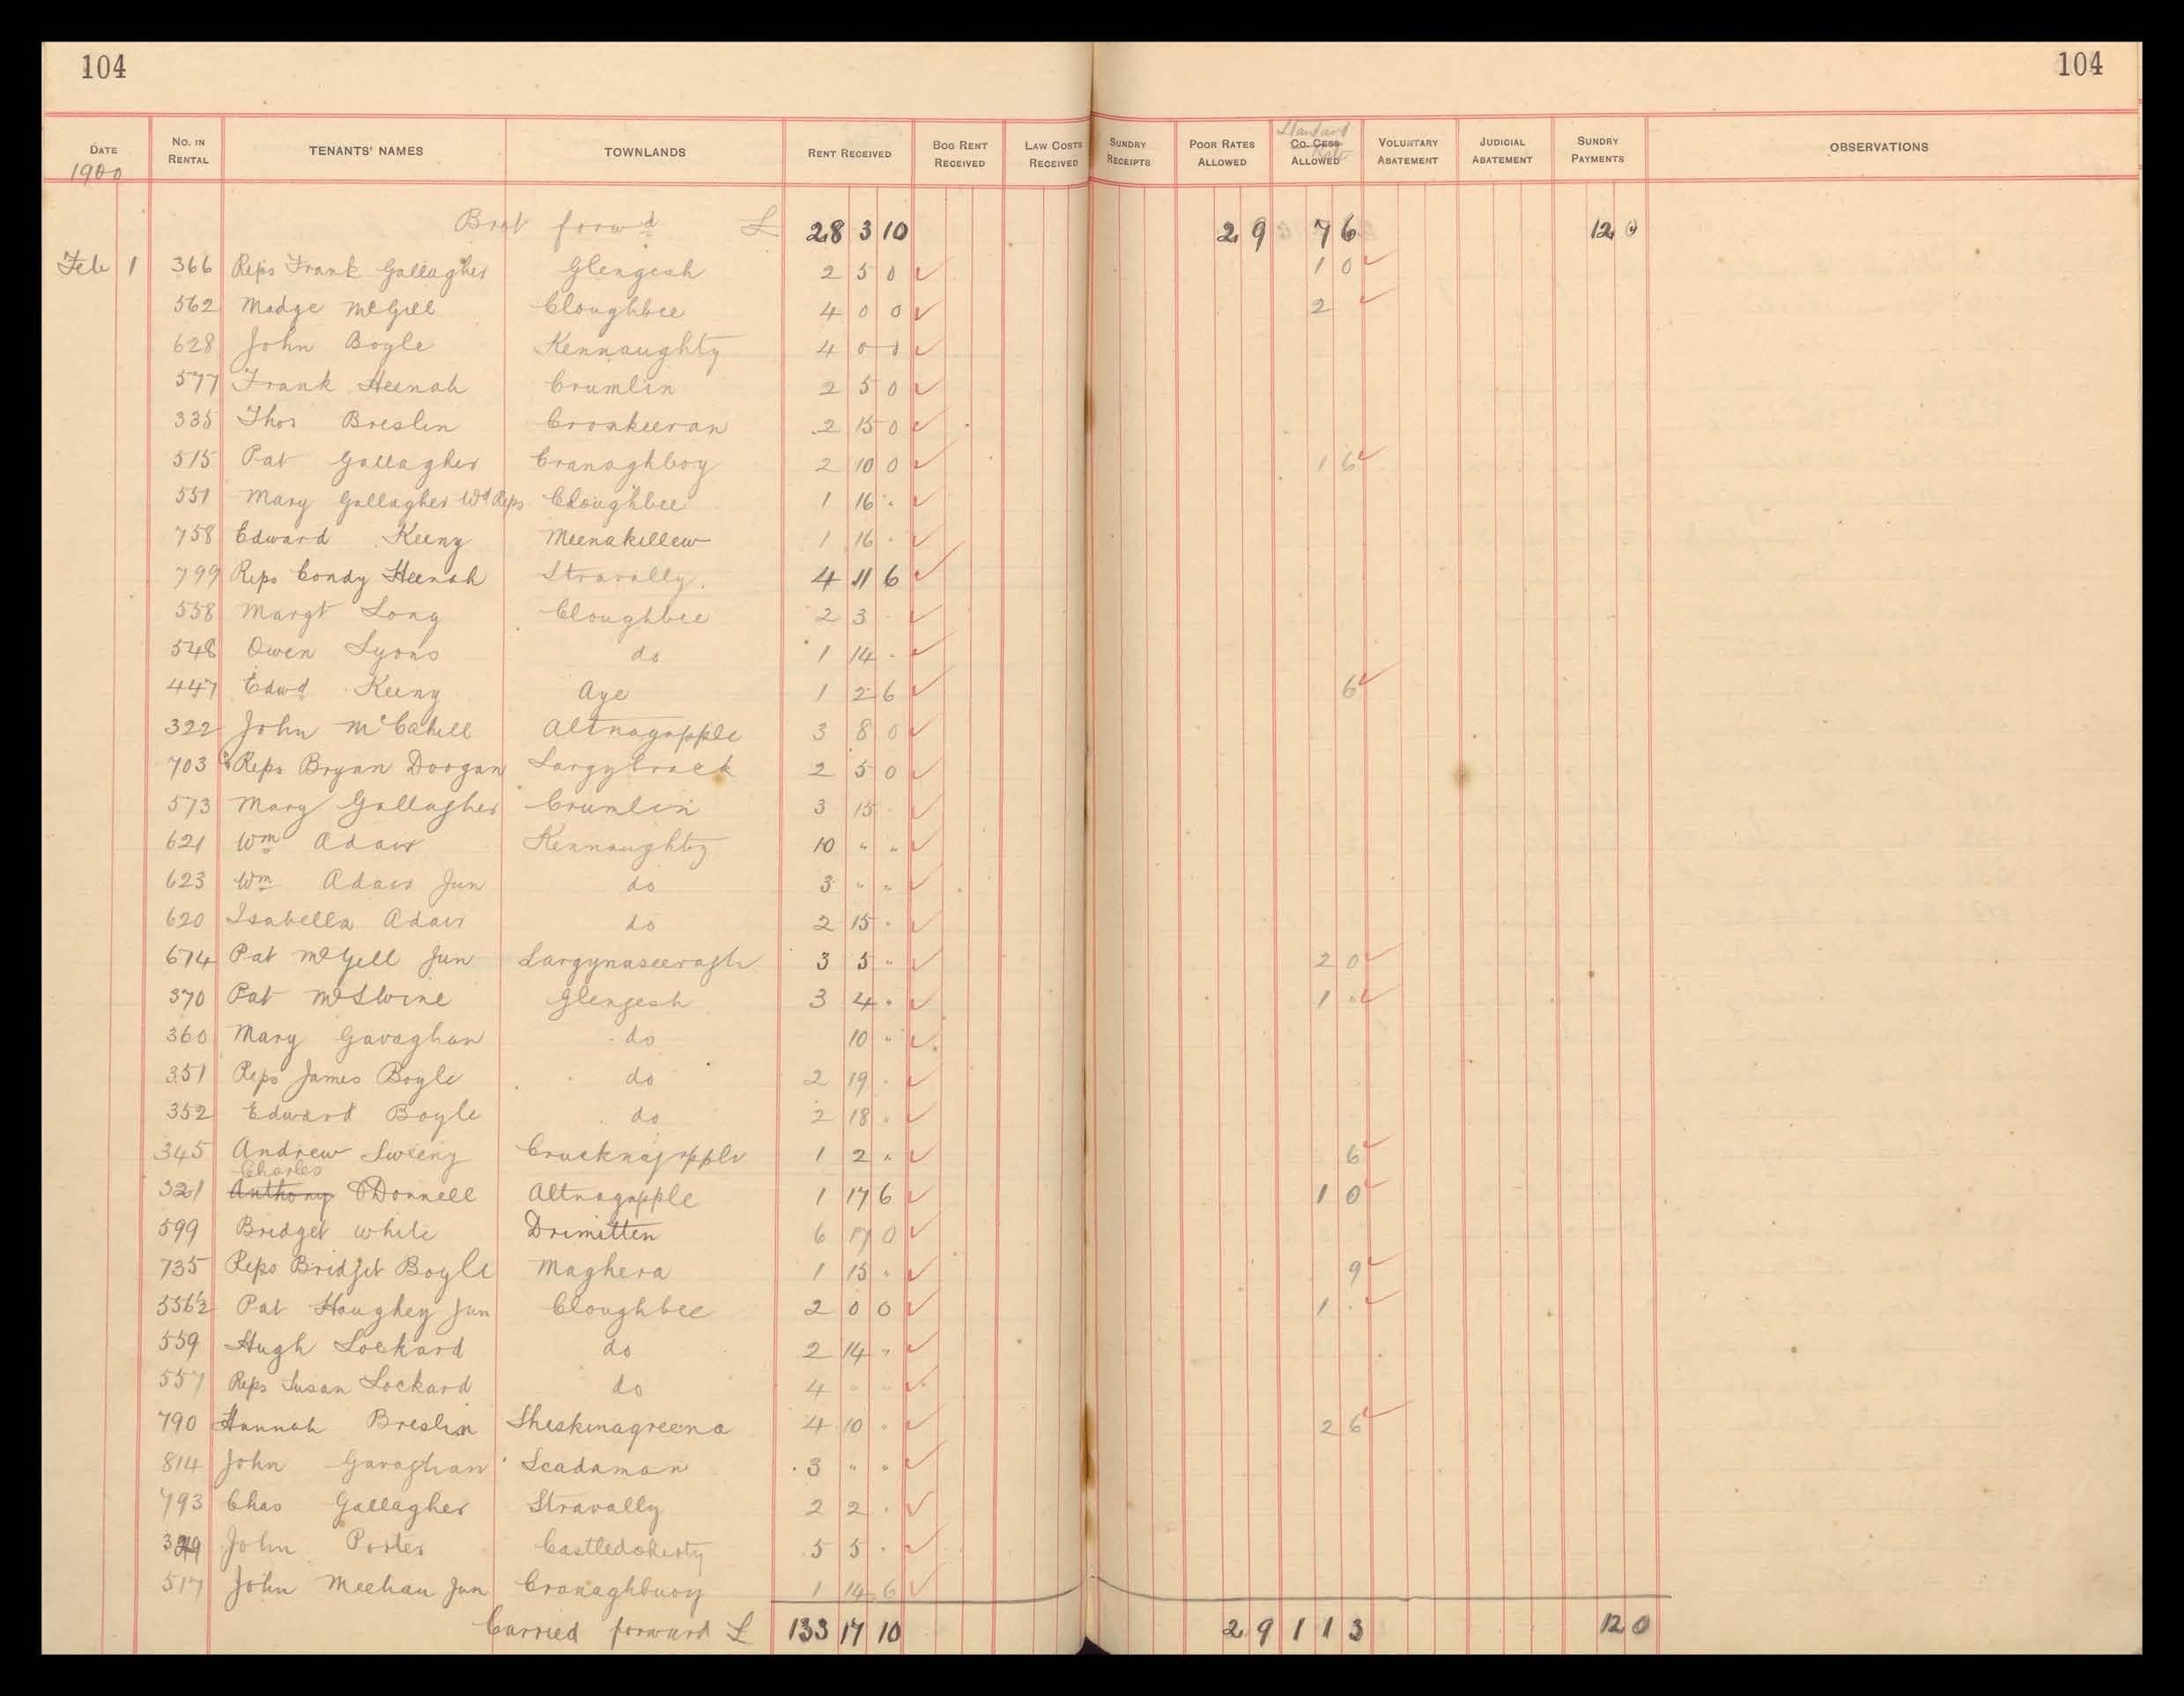 104 104
DATE No. IN RENTAL TENANTS' NAMES TOWNLANDS RENT RECEIVED BOG RENT RECEIVED LAW COSTS RECEIVED SUNDRY RECEIPTS POOR RATES ALLOWED Standard Co. Cess Rate ALLOWED VOLUNTARY ABATEMENT JUDICIAL ABATEMENT SUNDRY PAYMENTS OBSERVATIONS
1900
Brot forwd £ 28 3 10 2 9 7 6 12 0
Feb 1 366 Reps Frank Gallagher Glengesh 2 5 0 1 0
562 Madge McGill Cloughbee 4 0 0 2
628 John Boyle Kennaughty 4 0 0
577 Frank Heenah Crumlin 2 5 0
335 Thos Breslin Cronkeeran 2 15 0
515 Pat Gallagher Cranaghboy 2 10 0 1 6
551 Mary Gallagher Wd Reps Cloughbee 1 16 "
758 Edward Keeny Meenakillew 1 16 "
799 Reps Condy Heenah Stravally. 4 11 6
558 Margt Long Cloughbee 2 3 "
548 Owen Lyons do 1 14 "
447 Edwd Keeny Aye 1 2 6 6
322 John McCahill Altnagapple 3 8 0
703 Reps Bryan Doogan Largybrack 2 5 0
573 Mary Gallagher Crumlin 3 15 "
621 Wm Adair Kennaughty 10 " "
623 Wm Adair Jun do 3 " "
620 Isabella Adair do 2 15 "
674 Pat McGill Jun Largynaseeragh 3 5 " 2 0
370 Pat McSwine Glengesh 3 4 " 1 "
360 Mary Gavaghan do 10 "
351 Reps James Boyle do 2 19 "
352 Edward Boyle do 2 18 "
345 Andrew Sweeny Crucknagapple 1 2 " 6
Charles
321 Anthony O'Donnell Altnagapple 1 17 6 1 0
599 Bridget White Drimitten 6 17 0
735 Reps Bridget Boyle Maghera 1 15 " 9
556½ Pat Haughey Jun Cloughbee 2 0 0 1 "
559 Hugh Lockard do 2 14 "
557 Reps Susan Lockard do 4 " "
790 Hannah Breslin Sheskinagreena 4 10 " 2 6
814 John Gavaghan Scadaman 3 " "
793 Chas Gallagher Stravally 2 2 "
John Porter Castledoherty 5 5 "
517 John Meehan Jun Cranaghbuoy 1 14 6
Carried forward £ 133 17 10 2 9 1 1 3 12 0